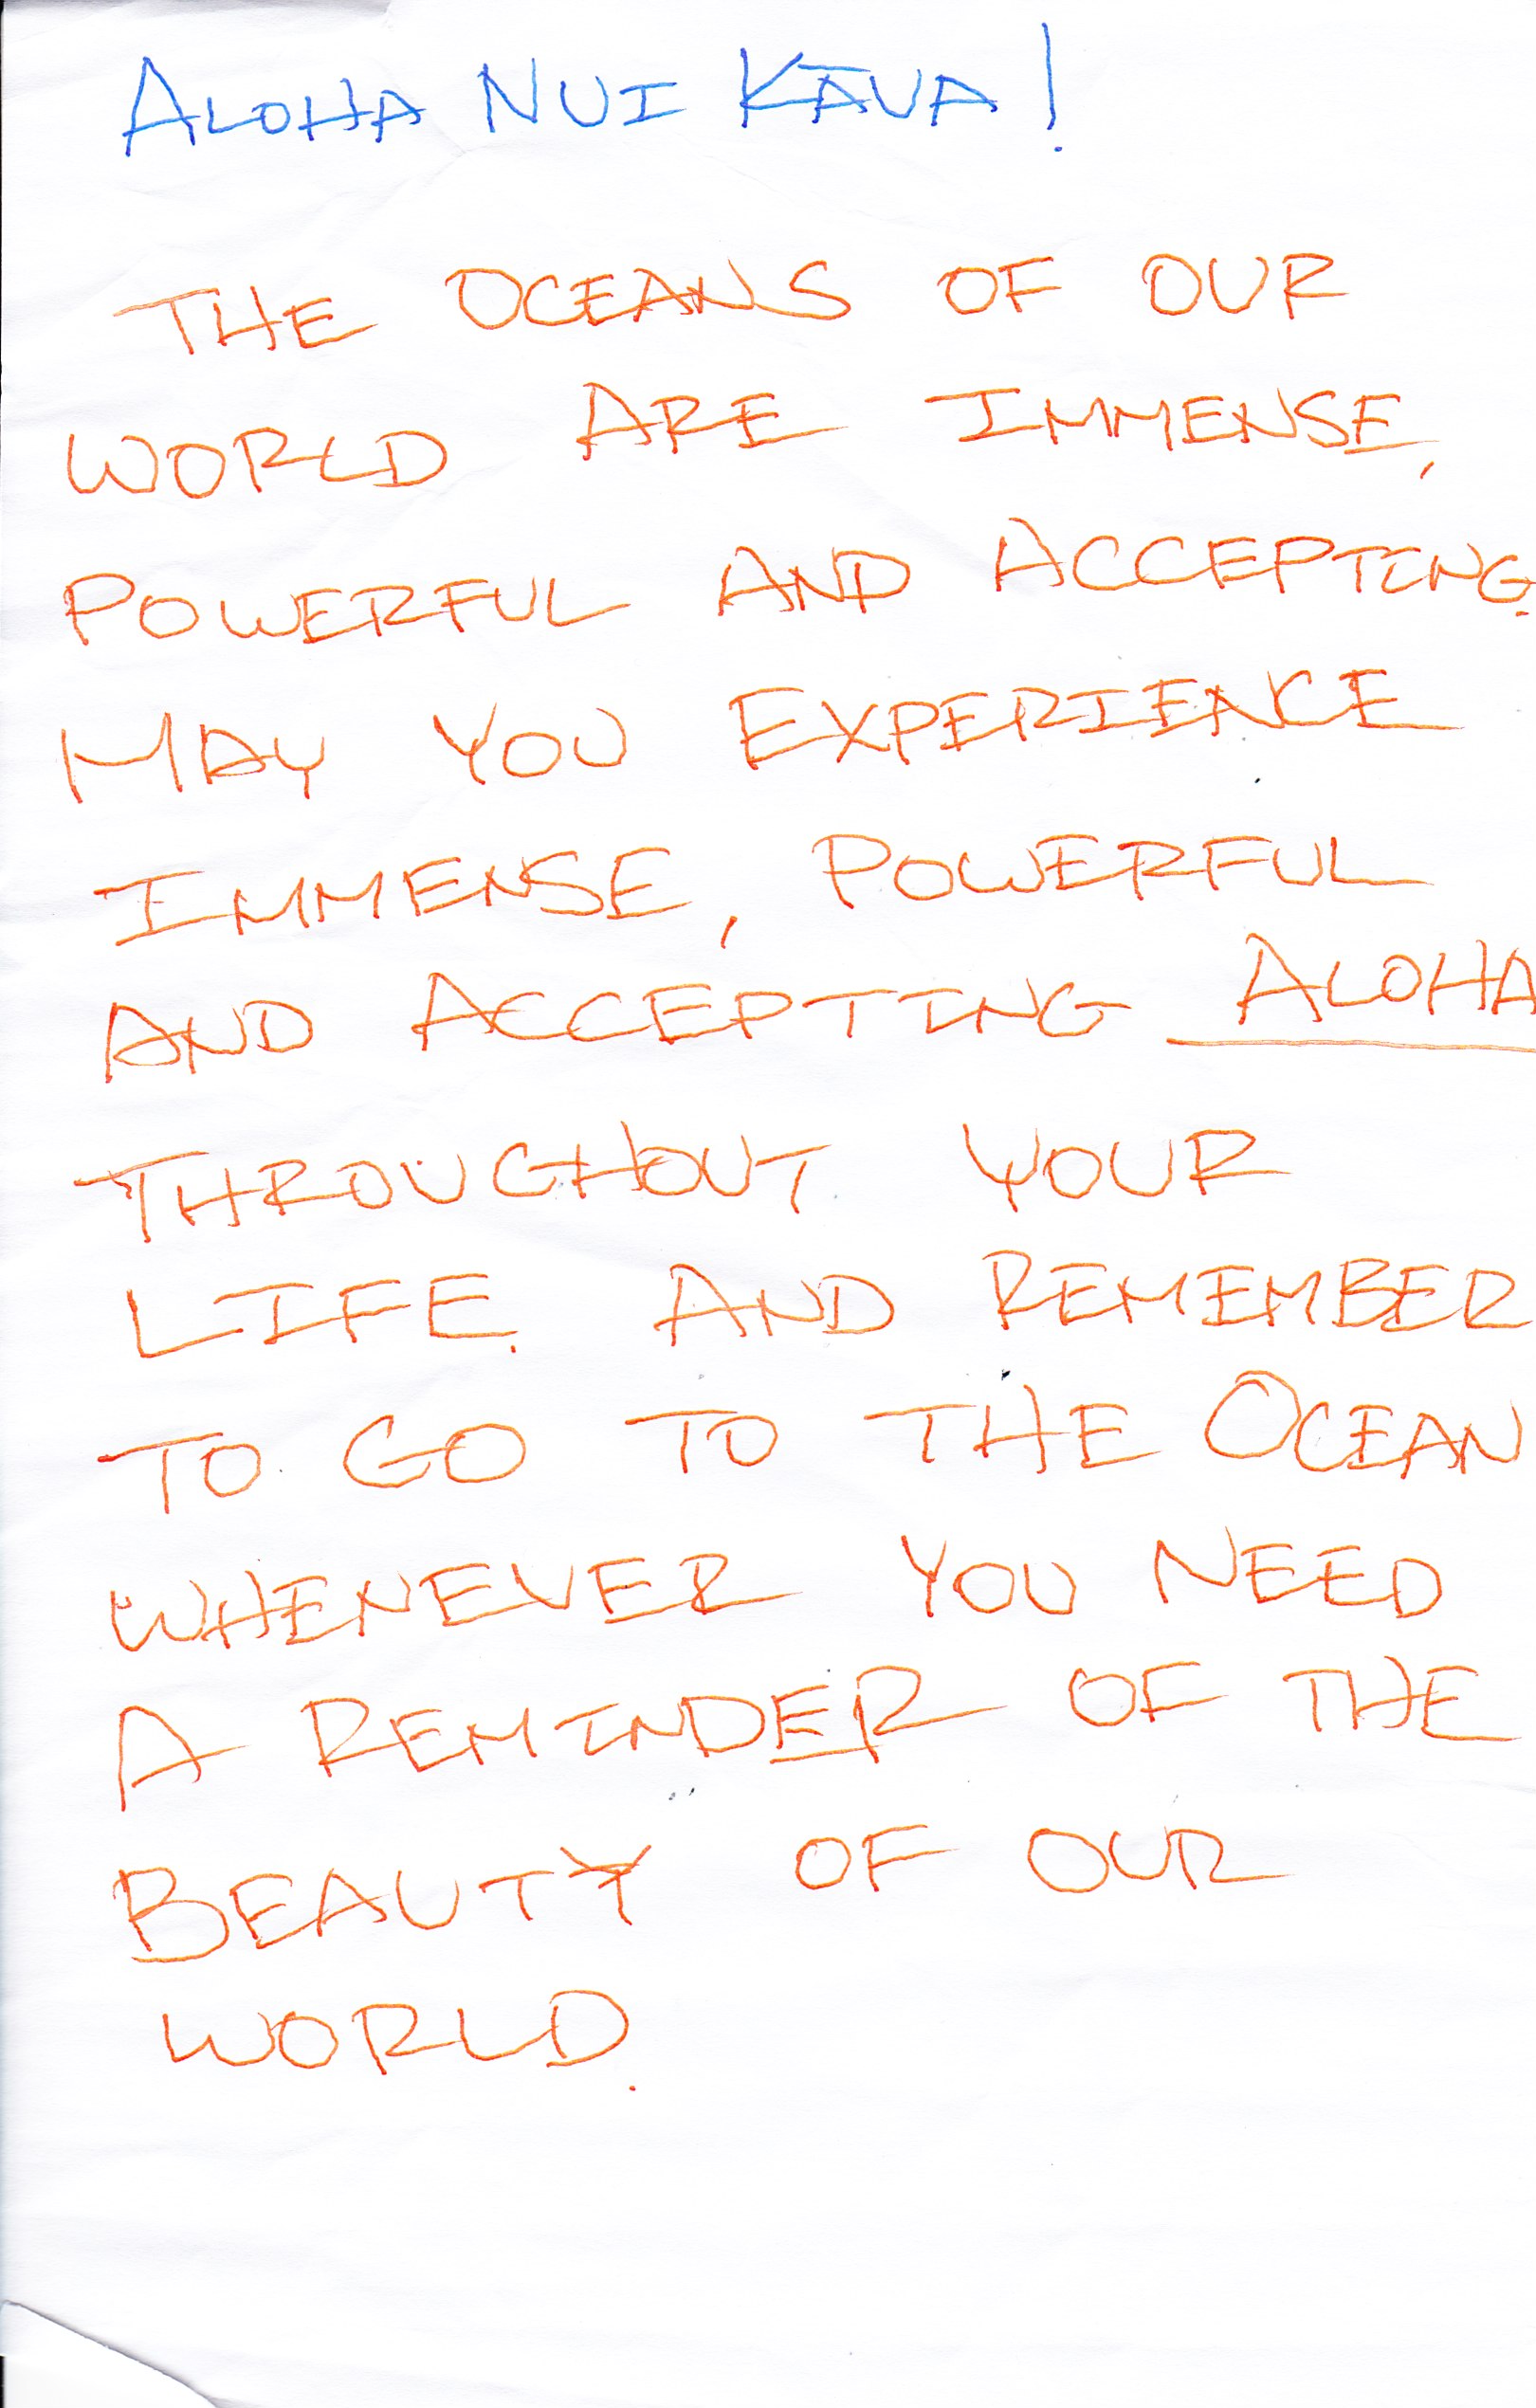 ALOHA NUI KAVA!
THE OCEANS OF OUR
WORLD ARE IMMENSE,
POWERFUL AND ACCEPTING.
MAY YOU EXPERIENCE
IMMENSE, POWERFUL
AND ACCEPTING ALOHA
THROUGHOUT YOUR
LIFE. AND REMEMBER
TO GO TO THE OCEAN
WHENEVER YOU NEED
A REMINDER OF THE
BEAUTY OF OUR
WORLD.